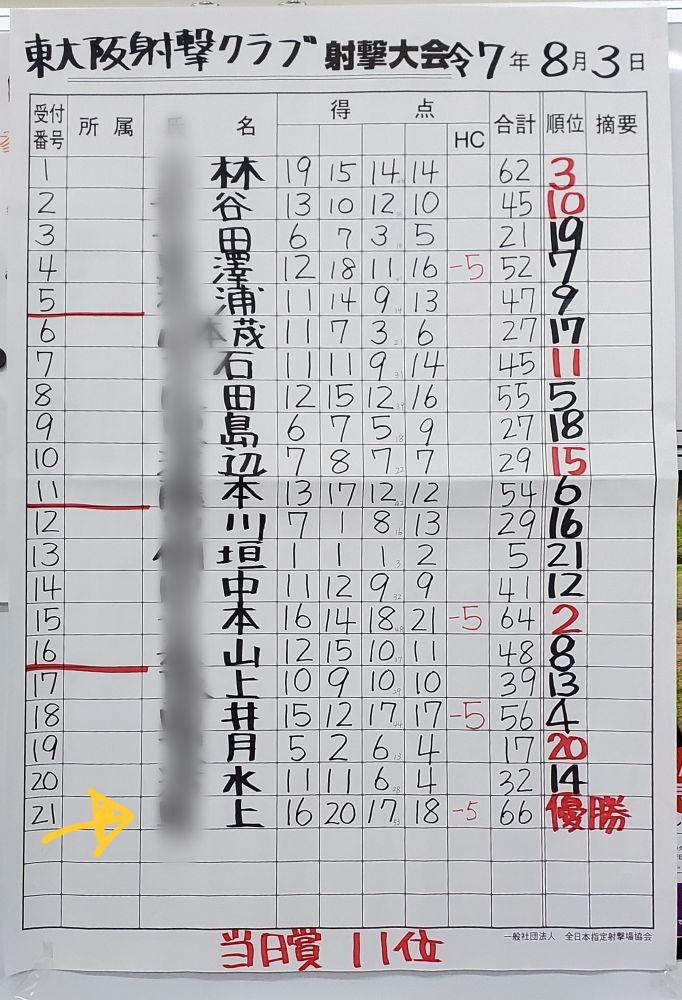 東大阪射撃クラブ 射撃大会 令7年8月3日
受付番号 所属 氏名 得点 HC 合計 順位 摘要
1 林 19 15 14 14 62 3
2 谷 13 10 12 10 45 10
3 田 6 7 3 5 21 19
4 澤 12 18 11 16 -5 52 7
5 浦 11 14 9 13 47 9
6 茂 11 7 3 6 27 17
7 石 11 11 9 14 45 11
8 田 12 15 12 16 55 5
9 島 6 7 5 9 27 18
10 辺 7 8 7 7 29 15
11 本 13 17 12 12 54 6
12 川 7 1 8 13 29 16
13 垣 1 1 1 2 5 21
14 中 11 12 9 9 41 12
15 本 16 14 18 21 -5 64 2
16 山 12 15 10 11 48 8
17 上 10 9 10 10 39 13
18 井 15 12 17 17 -5 56 4
19 月 5 2 6 4 17 20
20 水 11 11 6 4 32 14
21 上 16 20 17 18 -5 66 優勝
一般社団法人 全日本指定射撃場協会
当日賞 11位